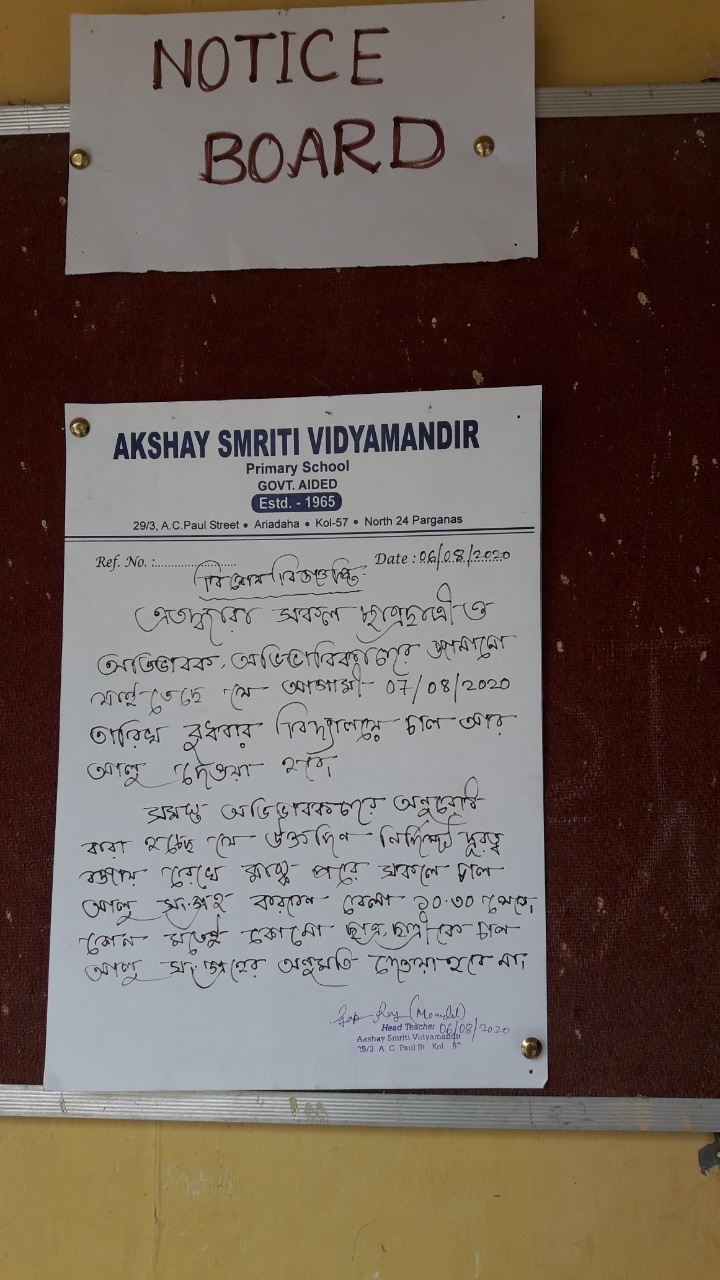 NOTICE
BOARD
AKSHAY SMRITI VIDYAMANDIR
Primary School
GOVT. AIDED
Estd. - 1965
29/3, A.C.Paul Street • Ariadaha • Kol-57 • North 24 Parganas
Ref. No. :........................ Date : 06/08/2020
বিশেষ বিজ্ঞপ্তি
এতদ্বারা সকল ছাত্রছাত্রী ও
অভিভাবক, অভিভাবিকাদেরে জানানো
যাইতেছে যে আগামী 07/08/2020
তারিখ বুধবার বিদ্যালয়ে চাল আর
আলু দেওয়া হবে।
সমস্ত অভিভাবকদেরে অনুরোধ
করা হচ্ছে যে উক্তদিন নির্দিষ্ট দূরত্ব
বজায় রেখে মাস্ক পরে সকলে চাল
আলু সংগ্রহ করবেন বেলা ১০.৩০ থেকে,
কোন মতেই কোনো ছাত্র, ছাত্রীকে চাল
আলু সংগ্রহের অনুমতি দেওয়া হবে না।
Roy (Mondal)
Head Teacher 06/08/2020
Akshay Smriti Vidyamandir
29/3 A C Paul St Kol 57